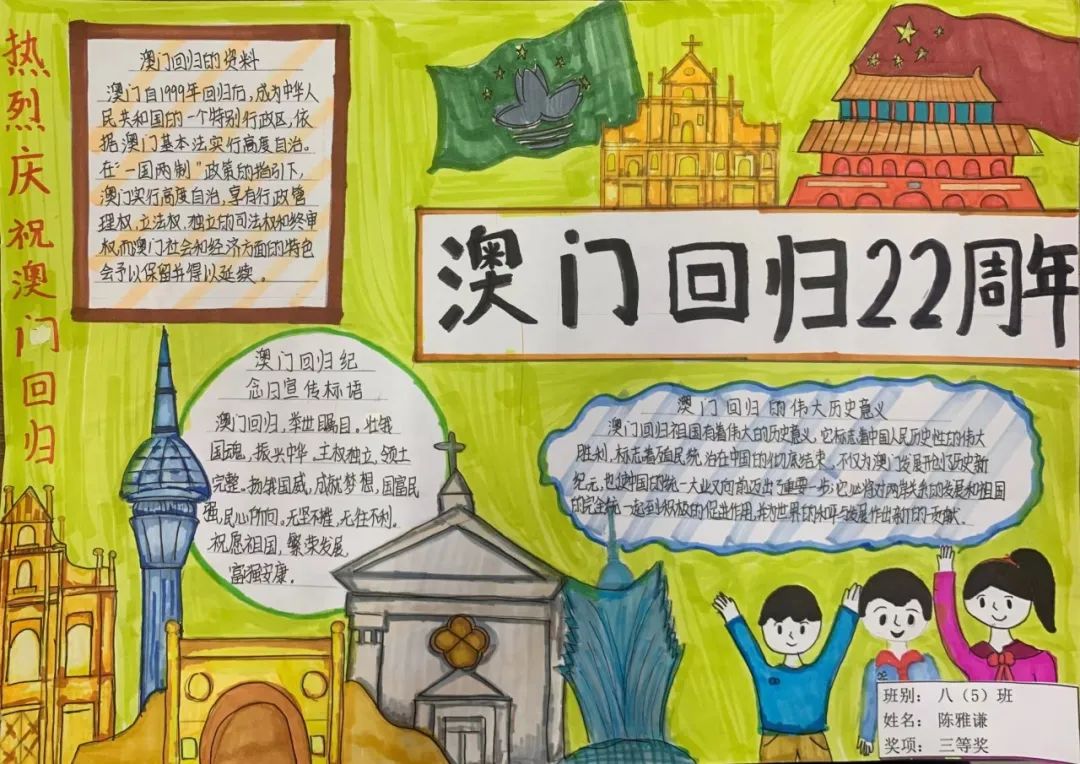 热烈庆祝澳门回归
澳门回归的资料
澳门自1999年回归后,成为中华人
民共和国的一个特别行政区,依
据澳门基本法实行高度自治。
在“一国两制”政策的指引下,
澳门实行高度自治,享有行政管
理权,立法权,独立的司法权和终审
权,而澳门社会和经济方面的特色
会予以保留并得以延续。
澳门回归22周年
澳门回归纪
念日宣传标语
澳门回归,举世瞩目。壮我
国魂,振兴中华,主权独立,领土
完整。扬我国威,成就梦想,国富民
强,民心所向。无坚不摧,无往不利。
祝愿祖国,繁荣发展,
富强安康。
澳门回归的伟大历史意义
澳门回归祖国有着伟大的历史意义,它标志着中国人民历史性的伟大
胜利,标志着殖民统治在中国的彻底结束,不仅为澳门发展开创了历史新
纪元,也使中国的统一大业又向前迈出了重要一步;它必将对两岸关系的发展和祖国
的完全统一起到积极的促进作用,并为世界的和平与发展作出新的贡献。
班别:八(5)班
姓名:陈雅谦
奖项:三等奖